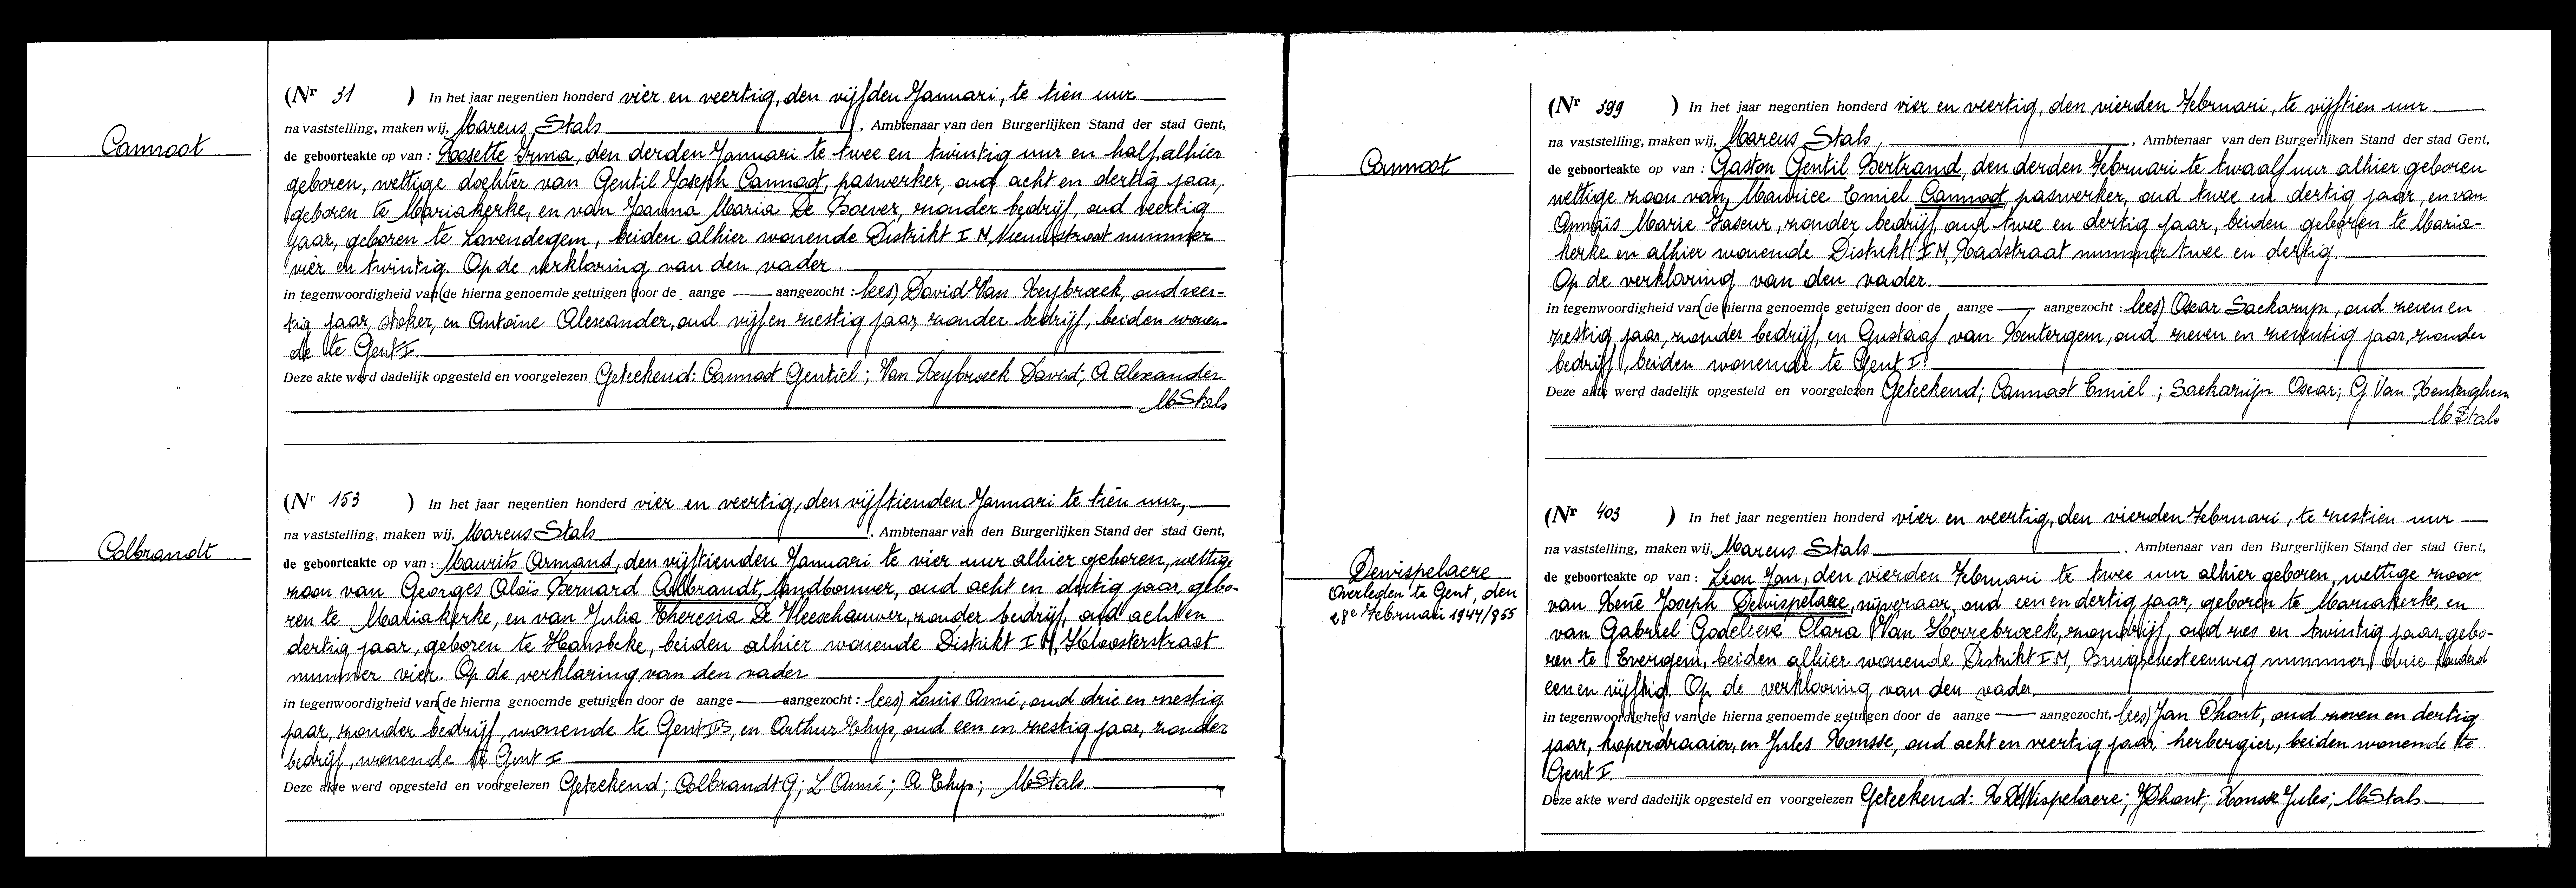 Cannoot
(Nr 31 ) In het jaar negentien honderd vier en veertig, den vijfden Januari, te tien uur
na vaststelling, maken wij, Marcus Stals, Ambtenaar van den Burgerlijken Stand der stad Gent,
de geboorteakte op van : Rosette Irma, den derden Januari te twee en twintig uur en half, alhier
geboren, wettige dochter van Gentil Joseph Cannoot, paswerker, oud acht en dertig jaar,
geboren te Mariakerke, en van Joanna Maria De Boever, zonder bedrijf, oud veertig
jaar, geboren te Lovendegem, beiden alhier wonende Distrikt I M, Nieuwstraat nummer
vier en twintig. Op de verklaring van den vader.
in tegenwoordigheid van (de hierna genoemde getuigen door de aange — aangezocht : lees) David Van Reybroeck, oud veer-
tig jaar, stoker, en Antoine Alexander, oud vijf en zestig jaar, zonder bedrijf, beiden wonen-
de te Gent I.
Deze akte werd dadelijk opgesteld en voorgelezen Geteekend: Cannoot Gentiel; Van Reybroeck David; A Alexander
M Stals
Colbrandt
(Nr 153 ) In het jaar negentien honderd vier en veertig, den vijftienden Januari te tien uur,
na vaststelling, maken wij, Marcus Stals, Ambtenaar van den Burgerlijken Stand der stad Gent,
de geboorteakte op van : Maurits Armand, den vijftienden Januari te vier uur alhier geboren, wettige
zoon van Georges Aloïs Bernard Colbrandt, landbouwer, oud acht en dertig jaar, gebo-
ren te Mariakerke, en van Julia Theresia De Vleeschauwer, zonder bedrijf, oud acht en
dertig jaar, geboren te Hansbeke, beiden alhier wonende Distrikt I M, Kloosterstraat
nummer vier. Op de verklaring van den vader
in tegenwoordigheid van (de hierna genoemde getuigen door de aange — aangezocht : lees) Louis Anné, oud drie en zestig
jaar, zonder bedrijf, wonende te Gent, en Arthur Thys, oud een en zestig jaar, zonder
bedrijf, wonende te Gent I
Deze akte werd opgesteld en voorgelezen Geteekend; Colbrandt G; L Anné; A Thys; M Stals
Cannoot
(Nr 399 ) In het jaar negentien honderd vier en veertig, den vierden Februari, te vijftien uur
na vaststelling, maken wij, Marcus Stals, Ambtenaar van den Burgerlijken Stand der stad Gent,
de geboorteakte op van : Gaston Gentil Bertrand, den derden Februari te twaalf uur alhier geboren
wettige zoon van Maurice Emiel Cannoot, paswerker, oud twee en dertig jaar, en van
Annaïs Marie Taseur, zonder bedrijf, oud twee en dertig jaar, beiden geboren te Maria-
kerke en alhier wonende Distrikt I M, Raadstraat nummer twee en dertig.
Op de verklaring van den vader.
in tegenwoordigheid van (de hierna genoemde getuigen door de aange — aangezocht : lees) Oscar Sackarijn, oud zeven en
zestig jaar, zonder bedrijf, en Gustaaf van Renterghem, oud zeven en zeventig jaar, zonder
bedrijf, beiden wonende te Gent I.
Deze akte werd dadelijk opgesteld en voorgelezen Geteekend; Cannoot Emiel; Sackarijn Oscar; G Van Renterghem
M Stals
Dewispelaere
Overleden te Gent, den
28e Februari 1944/855
(Nr 403 ) In het jaar negentien honderd vier en veertig, den vierden Februari, te zestien uur
na vaststelling, maken wij, Marcus Stals, Ambtenaar van den Burgerlijken Stand der stad Gent,
de geboorteakte op van : Léon Jan, den vierden Februari te twee uur alhier geboren, wettige zoon
van René Joseph Dewispelaere, nijveraar, oud een en dertig jaar, geboren te Mariakerke, en
van Gabriel Godelieve Clara Van Herrebroeck, zonder bedrijf, oud zes en twintig jaar, gebo-
ren te Evergem, beiden alhier wonende Distrikt I M, Brugschesteenweg nummer drie honderd
een en vijftig. Op de verklaring van den vader
in tegenwoordigheid van (de hierna genoemde getuigen door de aange — aangezocht, lees) Jan Dhont, oud zeven en dertig
jaar, koperdraaier, en Jules Ronsse, oud acht en veertig jaar, herbergier, beiden wonende te
Gent I.
Deze akte werd dadelijk opgesteld en voorgelezen Geteekend: R DeWispelaere; J Dhont; Ronsse Jules; M Stals